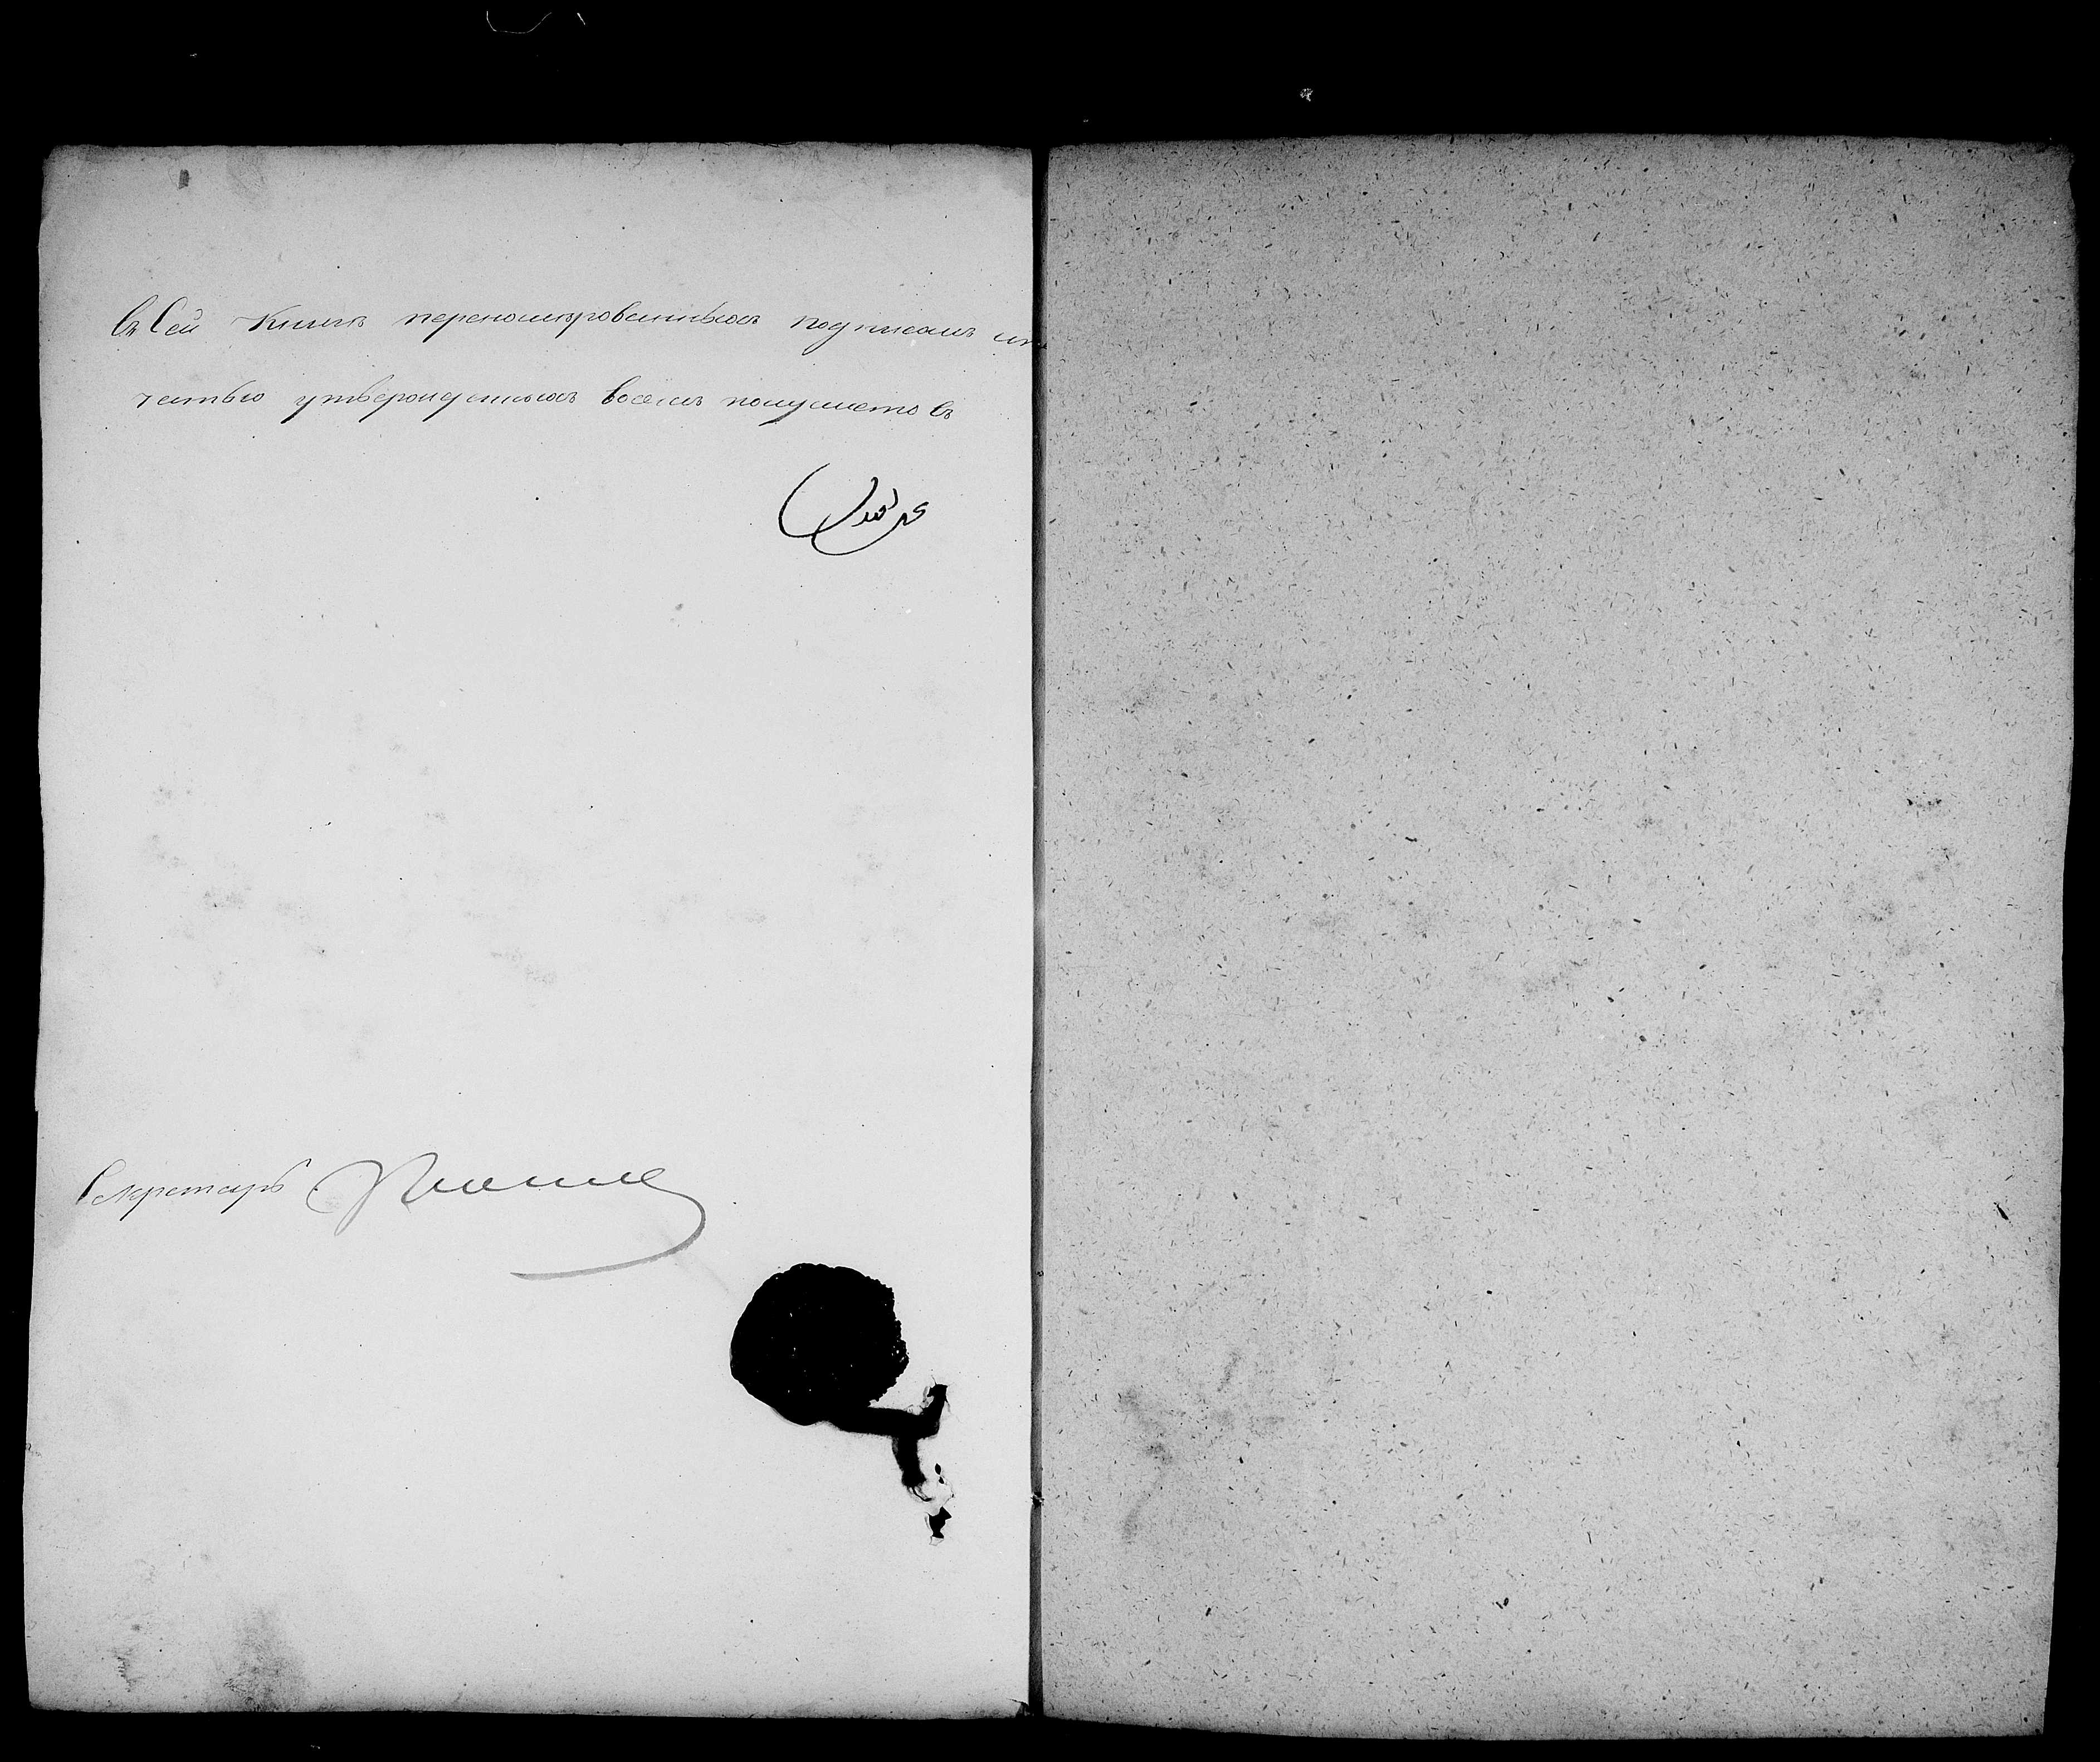 Въ Сей Книгѣ переномѣрованныхъ подписомъ и пе
чатью утвержденныхъ восемъ полулистовъ
Секретарь